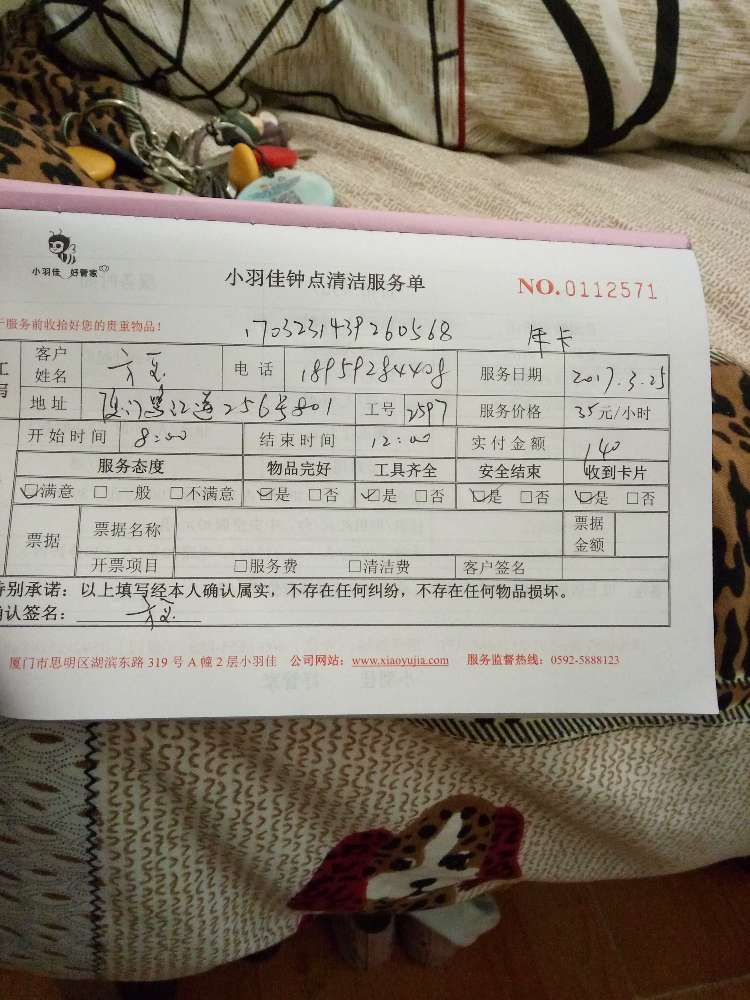 小羽佳 好管家
小羽佳钟点清洁服务单 NO.0112571
服务前收拾好您的贵重物品！
1703231439260568 年卡
客户姓名 电话 18959284408 服务日期 2017.3.25
地址 256号801 工号 2597 服务价格 35元/小时
开始时间 8:00 结束时间 12:00 实付金额 140
服务态度 物品完好 工具齐全 安全结束 收到卡片
☑满意 □一般 □不满意 ☑是 □否 ☑是 □否 ☑是 □否 ☑是 □否
票据 票据名称 票据金额
开票项目 □服务费 □清洁费 客户签名
特别承诺：以上填写经本人确认属实，不存在任何纠纷，不存在任何物品损坏。
确认签名：
厦门市思明区湖滨东路319号A幢2层小羽佳 公司网站：www.xiaoyujia.com 服务监督热线：0592-5888123